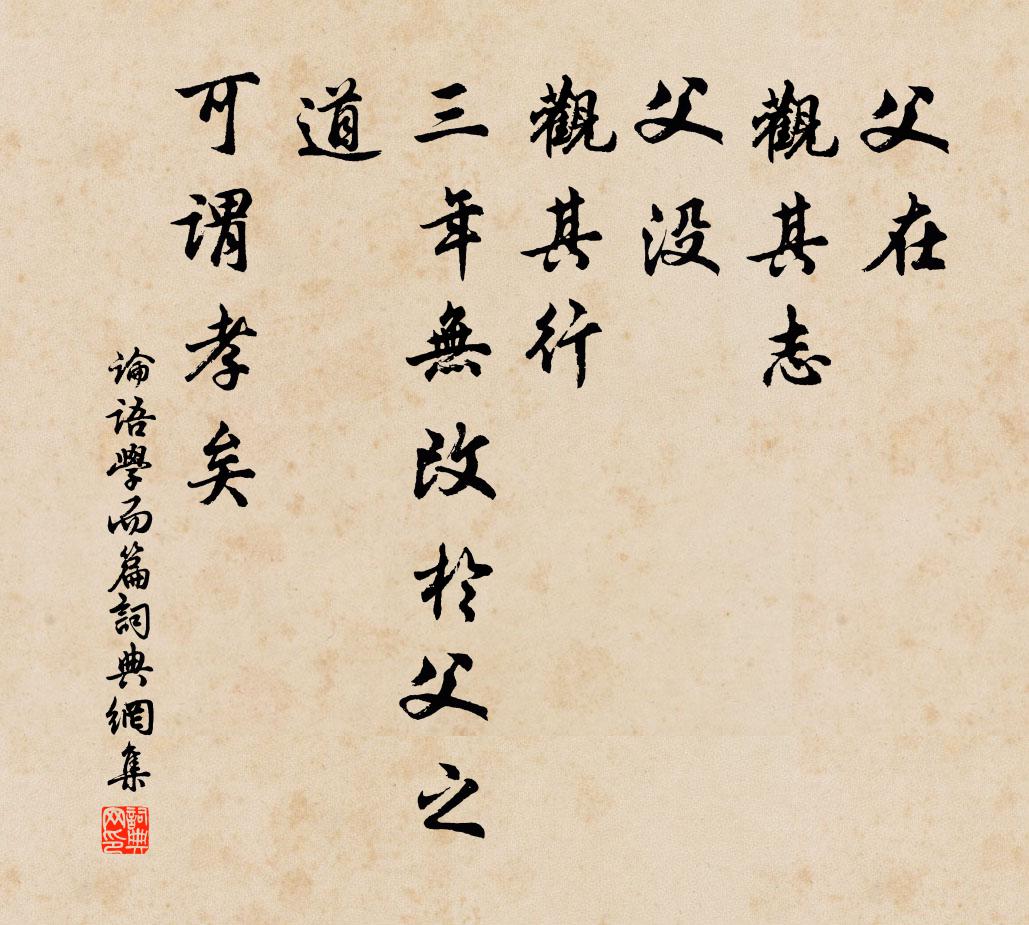 父在
觀其志
父没
觀其行
三年無改於父之
道
可謂孝矣
論語學而篇詞典網集
詞典网印